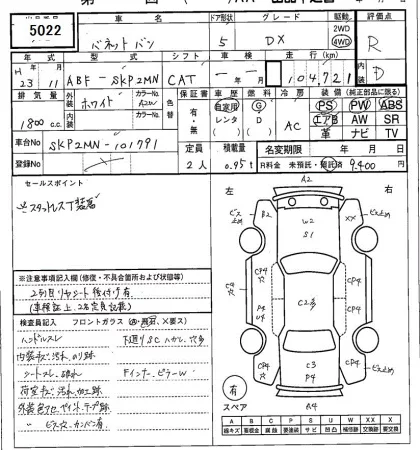 5022
車名
ドア形状
グレード
駆動
評価点
バネットバン
5
DX
2WD
4WD
R
年式
型式
シフト
車検
走行(km)
内装
H 23 11
ABF-SKP2MN
CAT
104,721
D
排気量
外装
カラーNo.
色替
保証書
車歴
燃料
冷房
装備(純正部品に限る)
1800 c.c.
ホワイト
A2W
有・無
自家用
レンタ
G
D
AC
PS PW ABS
エアB AW SR
革 ナビ TV
車台No
SKP2MN-101791
定員
積載量
名変期限
年 月 日
登録No
2人
0.95t
R料金 未預託・預託済 9,400円
セールスポイント
スタットレスT装着
左
右
※注意事項記入欄(修復・不具合箇所および状態等)
2列目リヤシート後付け有
(車検証上、2名定員記載)
検査員記入
フロントガラス
ハンドルスレ
下廻りSCハガレ、穴多
内装キズ、汚れ、のり跡
Fインナー、ピラーW
シートスレ、破れ
荷室キズ、汚れ、加工跡
外装色アセ、ペイント、テープ跡
〃 ビス穴、カンバン有
A2
ビス止め
B2
W2
S1
XX
ビス止め
CP4
穴
CP4
CP4
CP4
P4
U4
C2多
CP4
C3
P4
A4
有
スペア
A B C P S U W X XX
線キズ 要板金 腐蝕 要塗装 サビ 凹凸 補修跡 交換跡 要交換